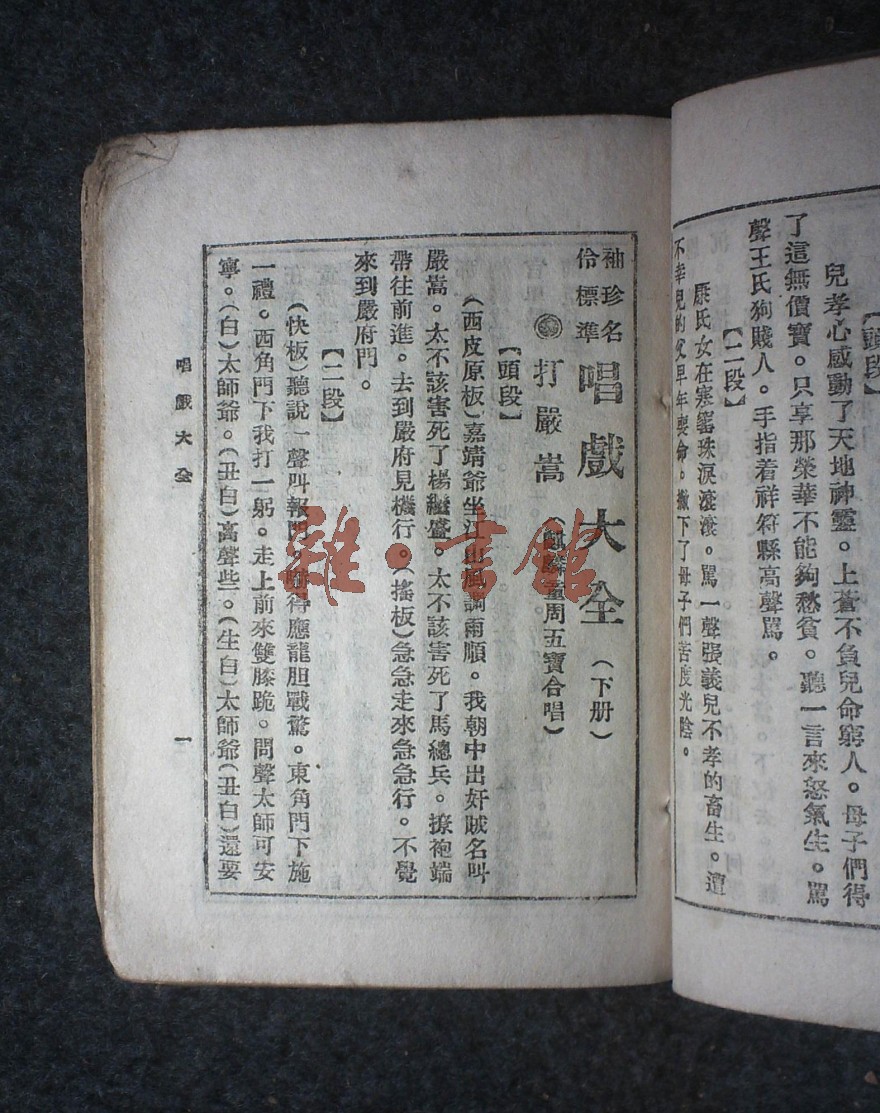 【頭段】
兒孝心感動了天地神靈。上蒼不負兒命窮人。母子們得
了這無價寶。只享那榮華不能夠愁貧。聽一言來怒氣生。罵
聲王氏狗賤人。手指着祥符縣高聲罵。
【二段】
康氏女在寒窰珠淚滾滾。罵一聲張義兒不孝的畜生。遭
不幸兒的父早年喪命。撇下了母子們苦度光陰。
袖珍名
伶標準
唱戲大全
(下册)
打嚴嵩
(麒麟童周五寶合唱)
【頭段】
(西皮原板)嘉靖爺坐江山風調雨順。我朝中出奸賊名叫
嚴嵩。太不該害死了楊繼盛。太不該害死了馬總兵。撩袍端
帶往前進。去到嚴府見機行。(搖板)急急走來急急行。不覺
來到嚴府門。
【二段】
(快板)聽說一聲叫報門。嚇得應龍胆戰驚。東角門下施
一禮。西角門下我打一躬。走上前來雙膝跪。問聲太師可安
寧。(白)太師爺。(丑白)高聲些。(生白)太師爺(丑白)還要
唱戲大全
一
雜·書館